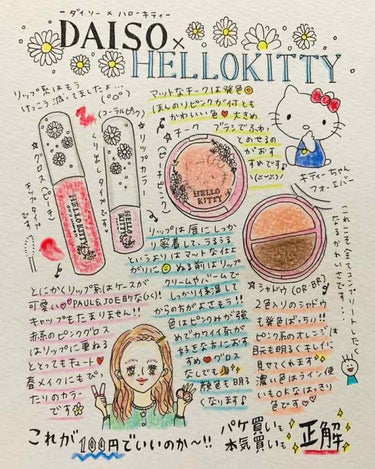 ーダイソー×ハローキティー
DAISO×
HELLOKITTY
リップ系はもう
けっこう減ってましたよ…
(°◇°)
(コーラルピンク)
☆リップカラー
くり出しタイプです
☆グロス(ピーチ)
チップタイプです
HELLO KITTY
HELLO KITTY
マットなチークは発色◎
ほんのりピンクが付くとも
かわいい色♡大きめ
ブラシでふわっ
とのせるの
がおす
すめです♪
☆チーク
(ピーチピンク)
HELLO
KITTY
キティーちゃん
フォーエバー
これこそ全てコンプリートしたく
なるかわいさです…
リップは唇にしっか
り密着して、うるうる
というよりはマットな仕上
がりに◎ぬる前はリップ
クリームやバームで
しっかり保湿して
からの方がよさそう!!
色はピンクみが強
めでカワイイ系が
好きな方におす
すめ♡グロス
なしでも
発色も明る
くなります♪
☆シャドウ(OR・BR)
2色入りのシャドウ
も発色ばっちり!!
ピンク系のオレンジ
目元も明るくキレイに
見せてくれます
濃い色はライン使
いもOKなはっきり
色です♡
とにかくリップ系はケースが
可愛い♡PAUL&JOE的な(い)!
キャップもたまりません!!
赤系のピンクグロス
はリップに重ねる
ととってもキュート♥
春メイクにもぴっ
たりのカラー
です
これが100円でいいのか〜!!
パケ買いも
本気買いも
正解